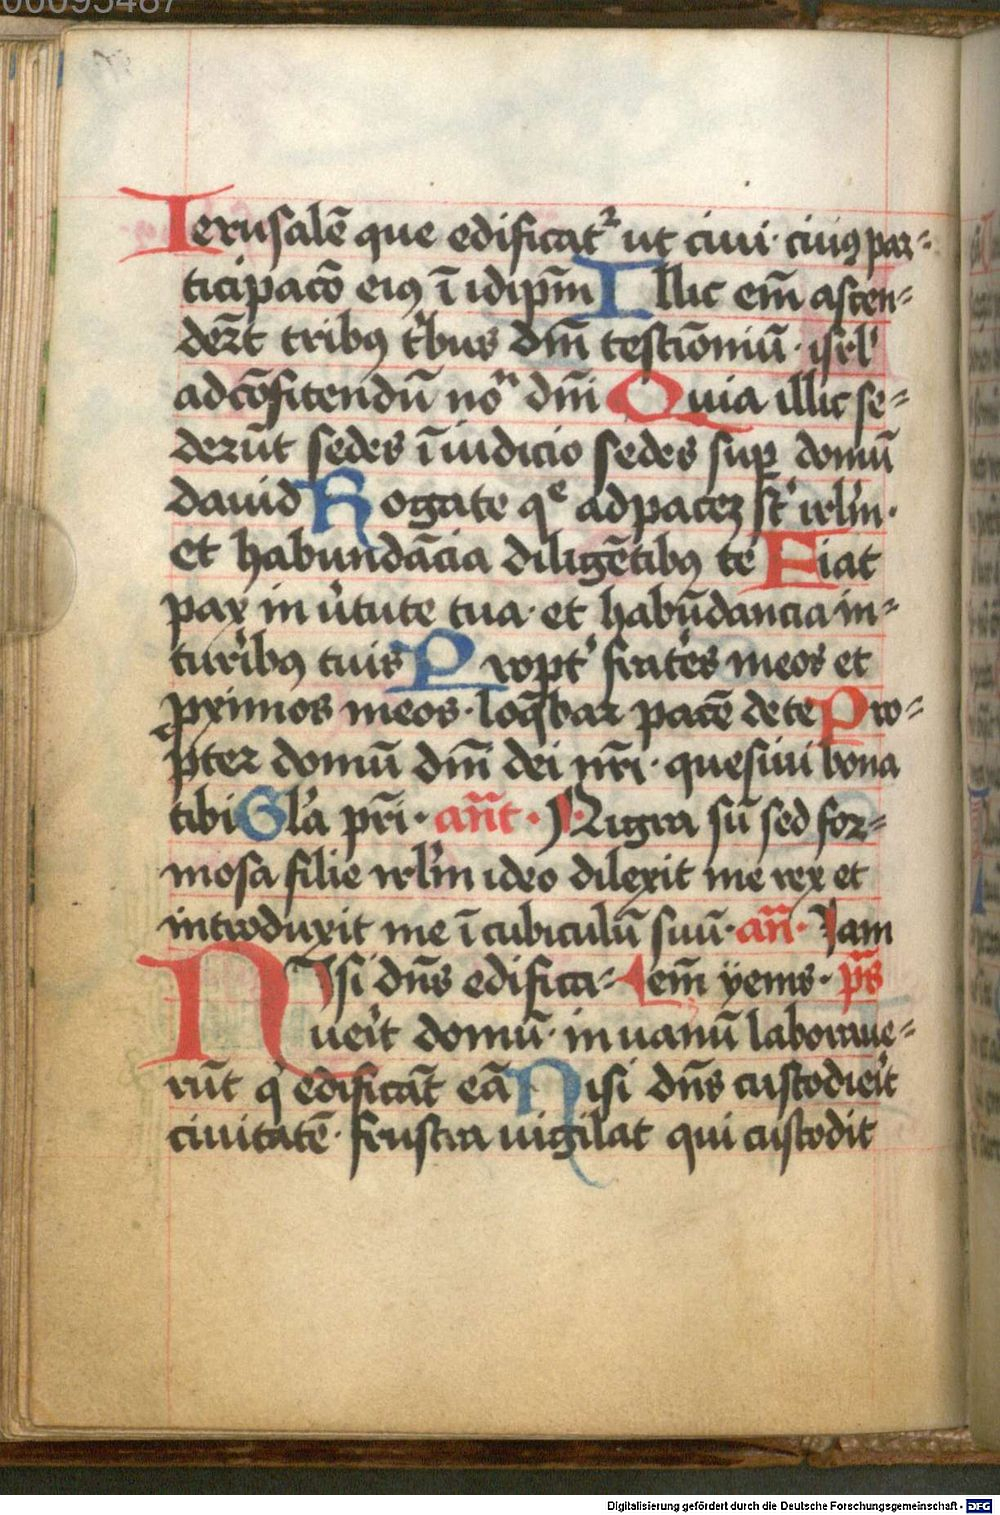 00095487
Ierusalē que edificatʳ ut ciui· ciuiꝰ par-
ticipacō eiꝰ ī idip̄m Illic em̄ ascen-
der̄t tribꝰ tͥbus dn̄i testīoniū· isrl̓
ad cōfitendū noͥ dn̄i Quia illic se-
derūt sedes ī iudicio sedes suꝑ domū
dauid Rogate qͤ ad pacēꝫ st̓ irl̓m·
et habundācia diligētibꝰ te Fiat
pax in u̓tute tua· et habūdancia in-
turr̓ibꝰ tuis Propt̓ frat̓es meos et
ꝓximos meos· loq̄bar pacē de te Pro-
pter domū dn̄i dei nr̄i· quesiui bona
tibi Gl̓a pr̄i· an̄t· Nigra sū sed for-
mosa filie irl̓m ideo dilexit me rex et
introduxit me ī cubiculū suū· an̄· Iam
Nisi dn̄s edifica- em̄ yems· ps̄
ueīt domū· in uanū laboraue-
rūt qͥ edificāt eā Nisi dn̄s custodieīt
ciuitatē· frustra uigilat qui custodit
Digitalisierung gefördert durch die Deutsche Forschungsgemeinschaft - DFG